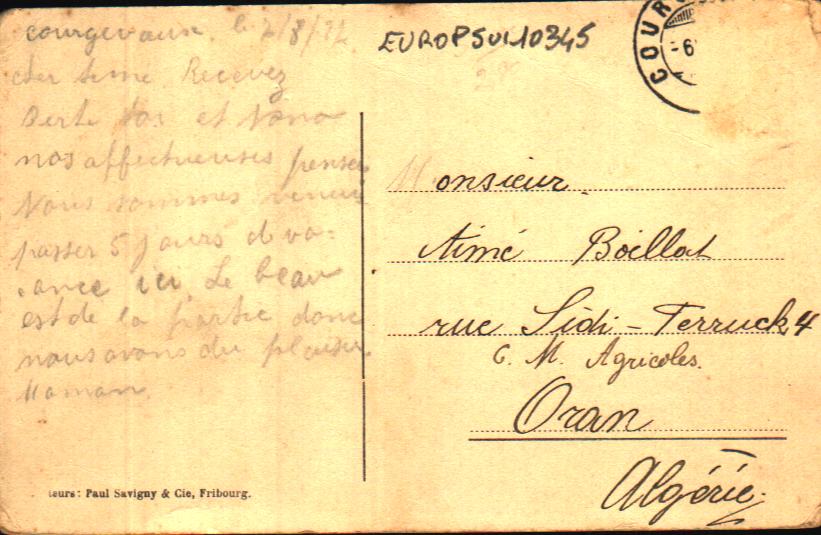 courgevaux. le 2/8/22
cher Aimé Recevez
Berte Vos et Nono
nos affectueuses pensées
Nous sommes venus
passer 5 jours de va-
cance ici Le beau
est de la partie donc
nous avons du plaisir
Maman
EUROPSUI10345
COUR
-6
Monsieur
Aimé Boillat
rue Sidi-Ferruch 4
C. M. Agricoles.
Oran
Algérie.
teurs: Paul Savigny & Cie, Fribourg.